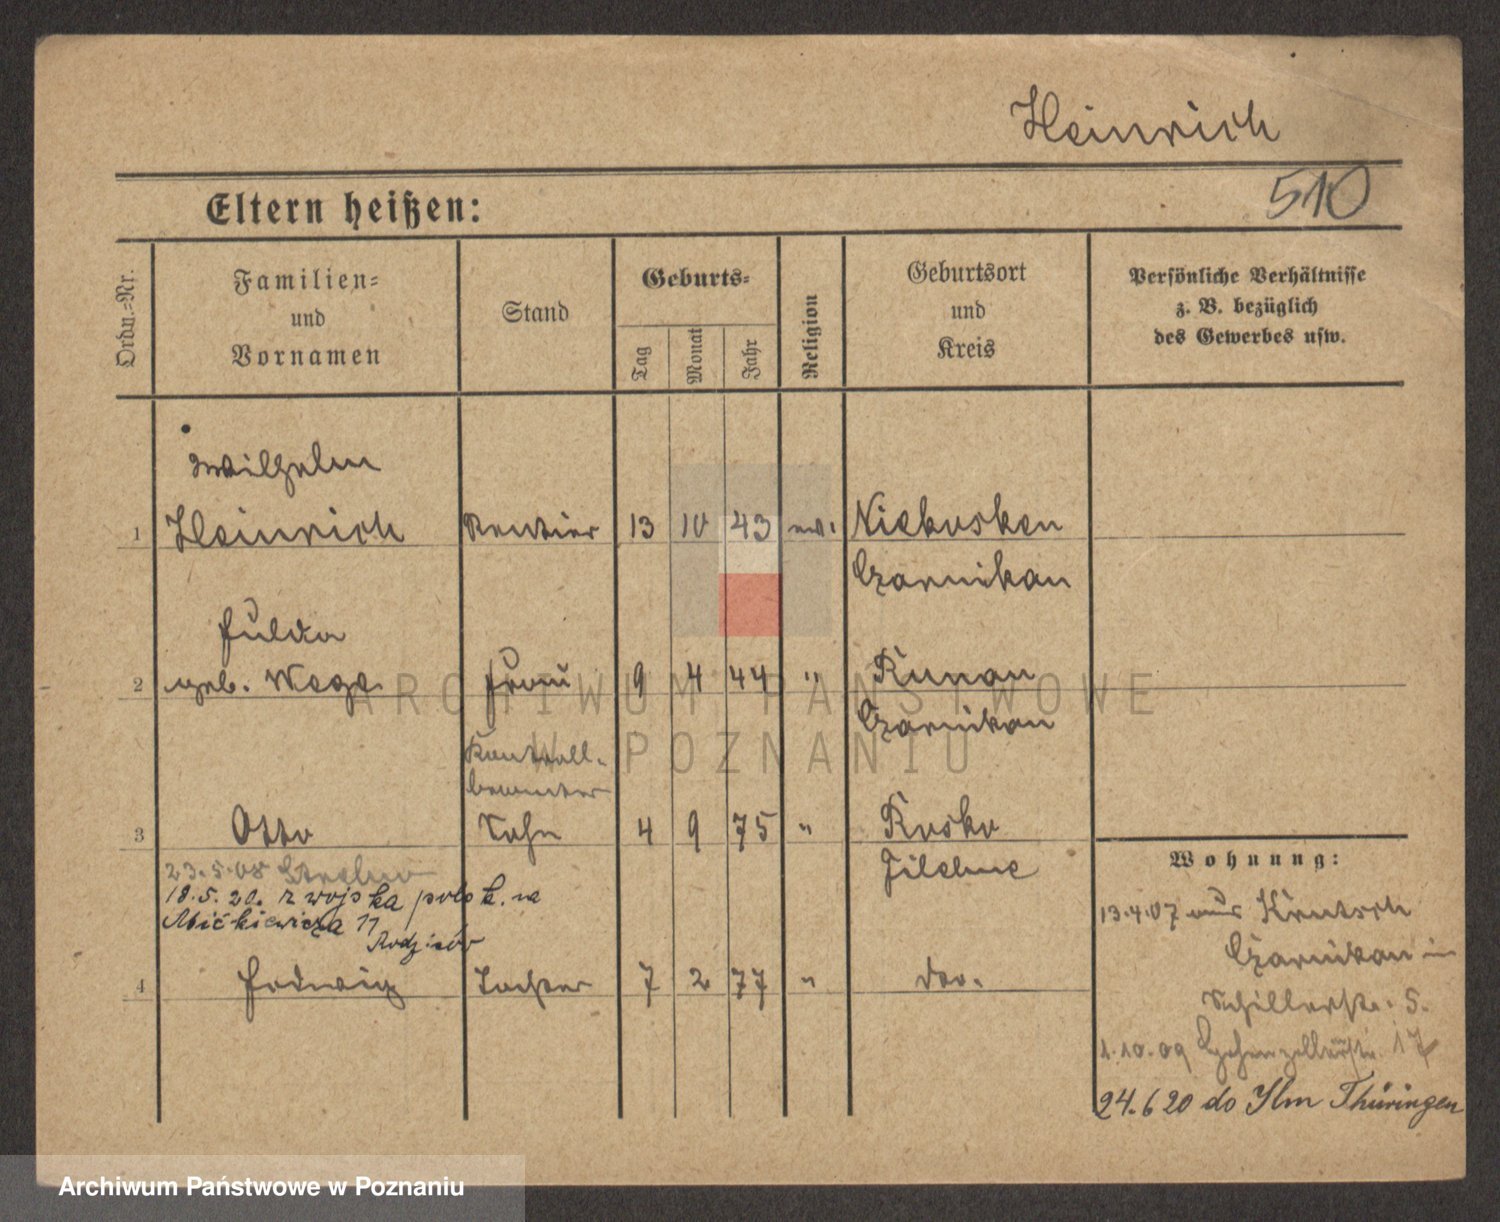 Heinrich
510
Eltern heißen:
Ordn.=Nr.
Familien=
und
Vornamen
Stand
Geburts=
Tag
Monat
Jahr
Religion
Geburtsort
und
Kreis
Persönliche Verhältnisse
z. B. bezüglich
des Gewerbes usw.
Wilhelm
1 Heinrich Rentier 13 10 43 ev. Niekosken
Czarnikau
Hulda
2 geb. Wege Frau 9 4 44 " Runau
Czarnikau
Kontroll-
beamter
3 Otto Sohn 4 9 75 " Rosko
Filehne
23.5.08
18.5.20. z wojska polsk. na
Mićkiewicza 11
Rodziców
4 Hedwig Tochter 7 2 77 " do.
Wohnung:
13.4.07 aus Krutsch
Czarnikau in
Schillerstr. 5.
1.10.09 Hohenzollernstr. 17
24.6 20 do Ilm Thüringen
ARCHIWUM PAŃSTWOWE
W POZNANIU
Archiwum Państwowe w Poznaniu